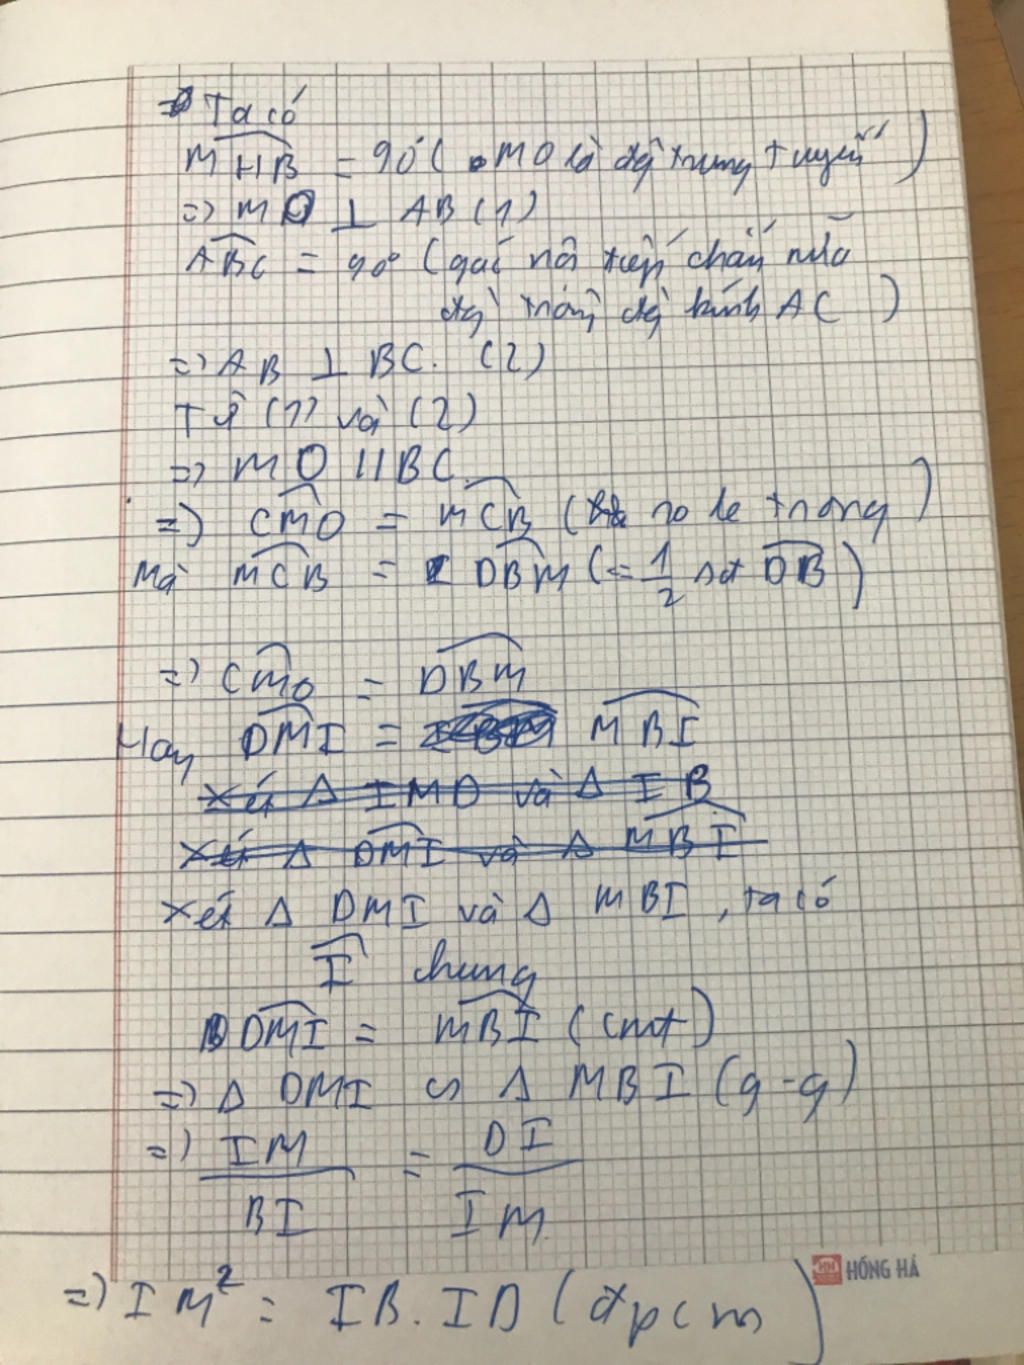 Ta có
MHB = 90° ( MO là đg trung tuyến )
=> MO ⊥ AB (1)
ABC = 90° (góc nội tiếp chắn nửa
đg tròn đg kính AC )
=> AB ⊥ BC. (2)
Từ (1) và (2)
=> MO // BC
=> CMO = MCB ( so le trong )
Mà MCB = DBM (= 1/2 sđ DB )
=> CMO = DBM
Hay DMI = MBI
Xét Δ IMD và Δ IB
Xét Δ DMI và Δ MBI
Xét Δ DMI và Δ MBI , ta có
I chung
DMI = MBI (cmt)
=> Δ DMI ∽ Δ MBI (g-g)
=> IM/BI = DI/IM
=> IM² = IB.ID (đpcm)
HH HỒNG HÀ